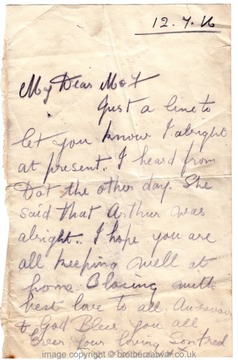 12.7.16
My Dear Mot
Just a line to
let you know I alright
at present. I heard from
Dot the other day. She
said that Arthur was
alright. I hope you are
all keeping well at
home. Closing with
best love to all. Au revoir
& God Bless you all
Ever your loving son Fred
image copyright © brotherswar.co.uk